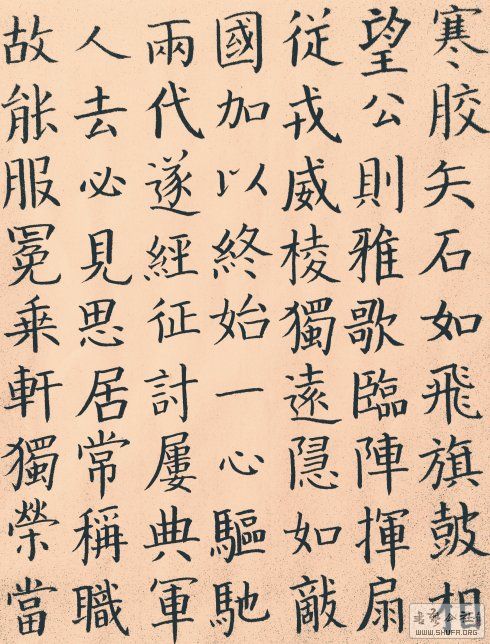 寒胶矢石如飛旗鼓相
望公則雅歌臨陣揮扇
従戎威棱獨遠隱如敵
國加以終始一心驅馳
兩代遂經征計屢典軍
人去必見思居常稱職
故能服冕乗軒獨榮當
WWW.SHUFA.ORG